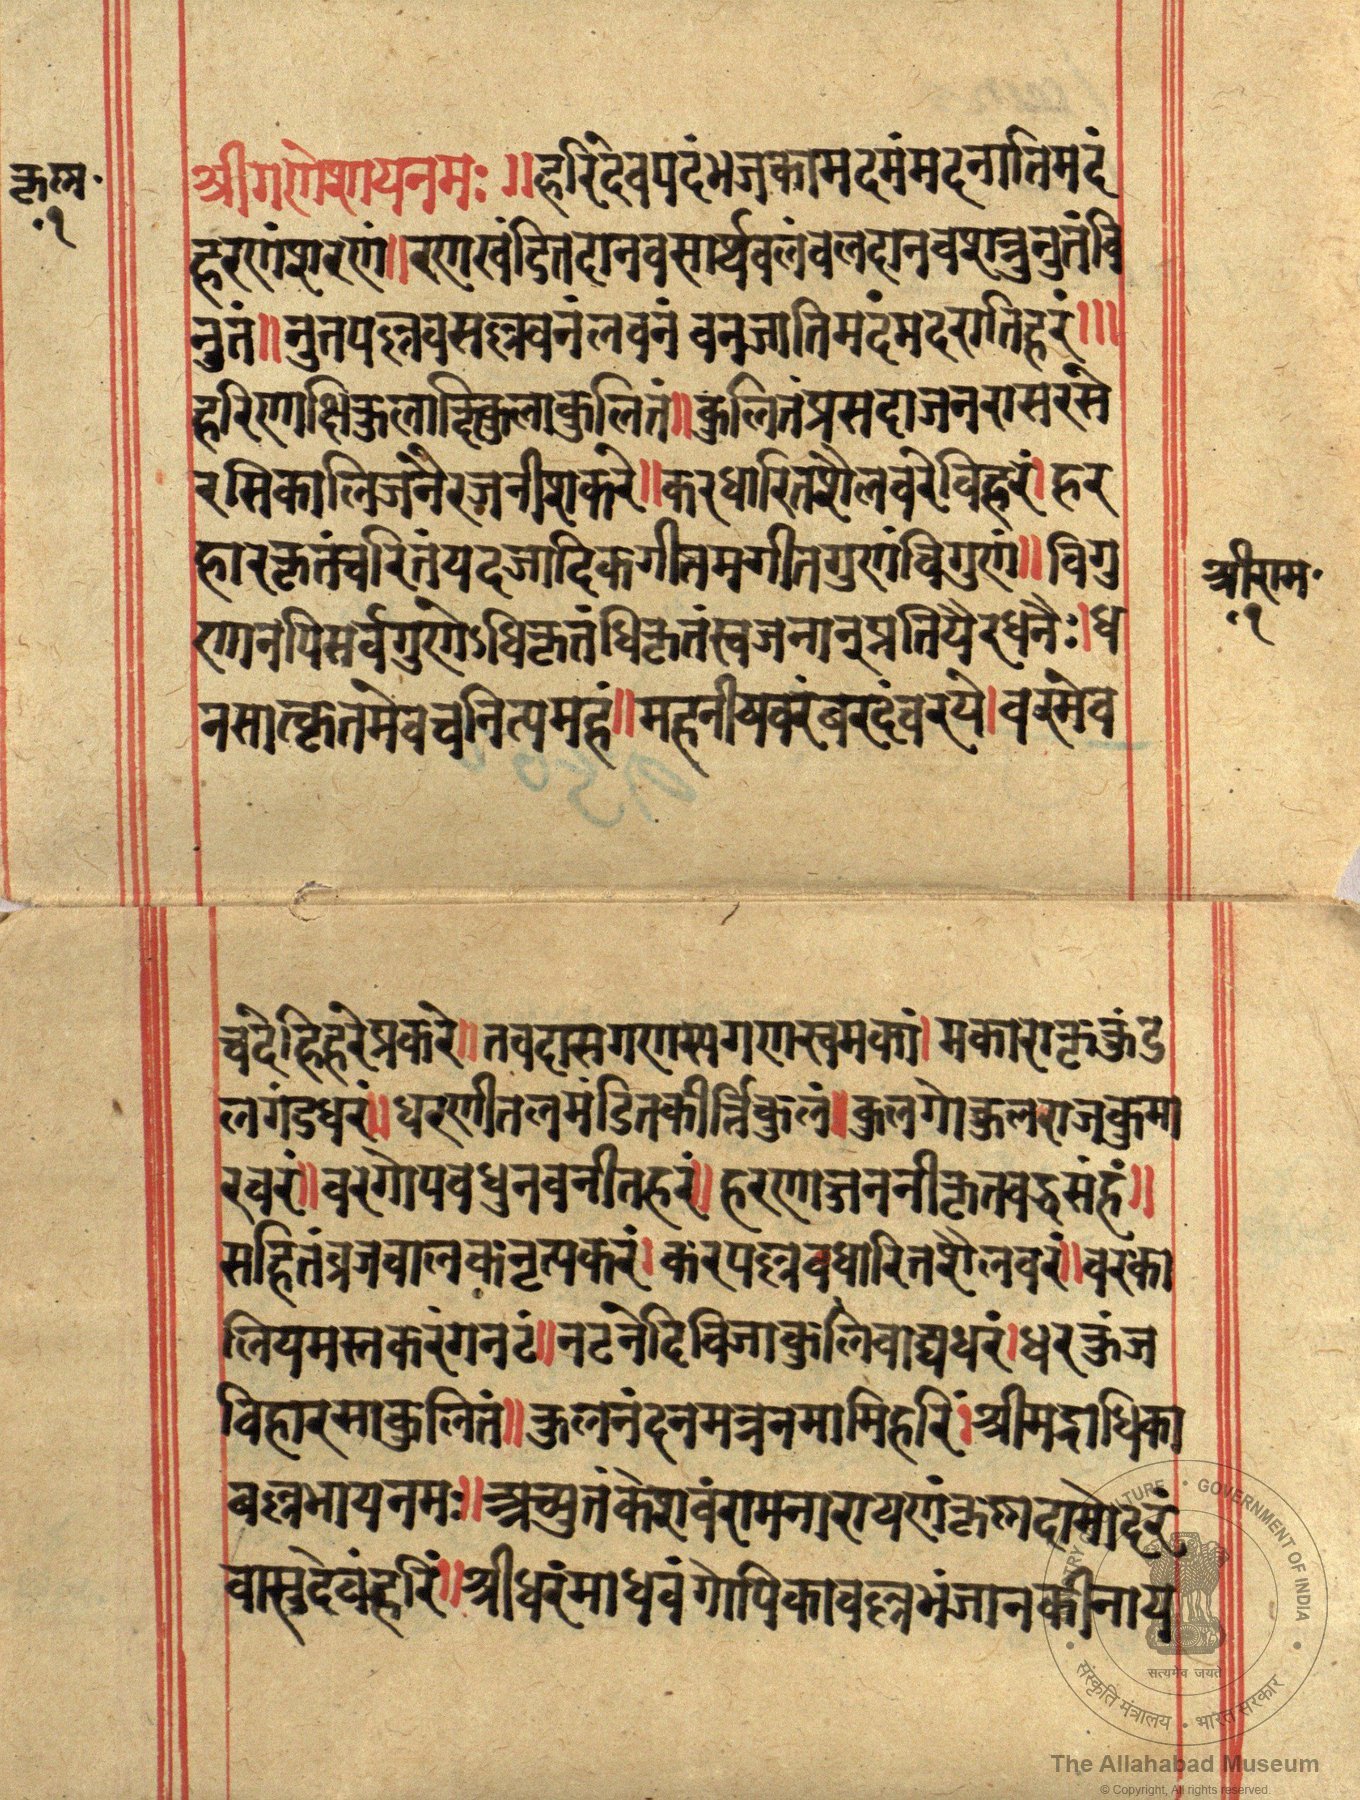 कृष्ण॰
॰१
श्रीगणेशायनमः ॥हरिंदेवपदंभजकामदमंमदनातिमदं
हरणंशरणं॥रणखंडितदानवसार्थवलंवलदानवशत्रुनुतंवि
नुतं॥नुतपल्लवसल्लवनंलवनं वनजातिमदंमदरातिहरं॥।
हरिणाक्षिकुलाकुलाकुलितं॥कुलितंप्रसदाजनरासरसे
रमिकालिजनैरजनीशकरे॥करधारितशैलवरेविहरं।हर
हारकृतंचरितंयदजादिकगीतमगीतगुणंविगुणं॥विगु
णनपिसर्वगुणेऽधिकृतंधिकृतंस्वजनानुप्रतियैरधनैः।ध
नसात्कृतमेवचनित्यमहं॥महनीयवरंबरदंवरये।वरमेव
श्रीराम॰
॰१
चंदेहिहरेप्रकरे॥तवदासगणस्यगणस्त्वमकां।मकाराकृकुंड
लगंडधरं॥धरणीतलमंडितकीर्त्तिकुलं॥कुलगोकुलराजकुमा
रवरं॥वरगोपवधुनवनीतहरं॥हरणाज्जननीकृतबद्धमंहं॥
सहितंव्रजवालकनृत्यकरं।करपल्लवधारितशैलवरं॥वरका
लियमस्तकरंगनटं॥नटनेदिविजाकुलिवाद्यधरं।धरकुंज
विहारसाकुलितं॥कुलनंदनमत्रनमामिहरिं।श्रीमद्राधिका
बल्लभायनमः॥अच्युतंकेशवंरामनारायणंकृष्णदामोदरं
वासुदेवंहरिं॥श्रीधरंमाधवंगोपिकावल्लभंजानकीनाय
सत्यमेव जयते
संस्कृति मंत्रालय • भारत सरकार
GOVERNMENT OF INDIA
The Allahabad Museum
© Copyright, All rights reserved.